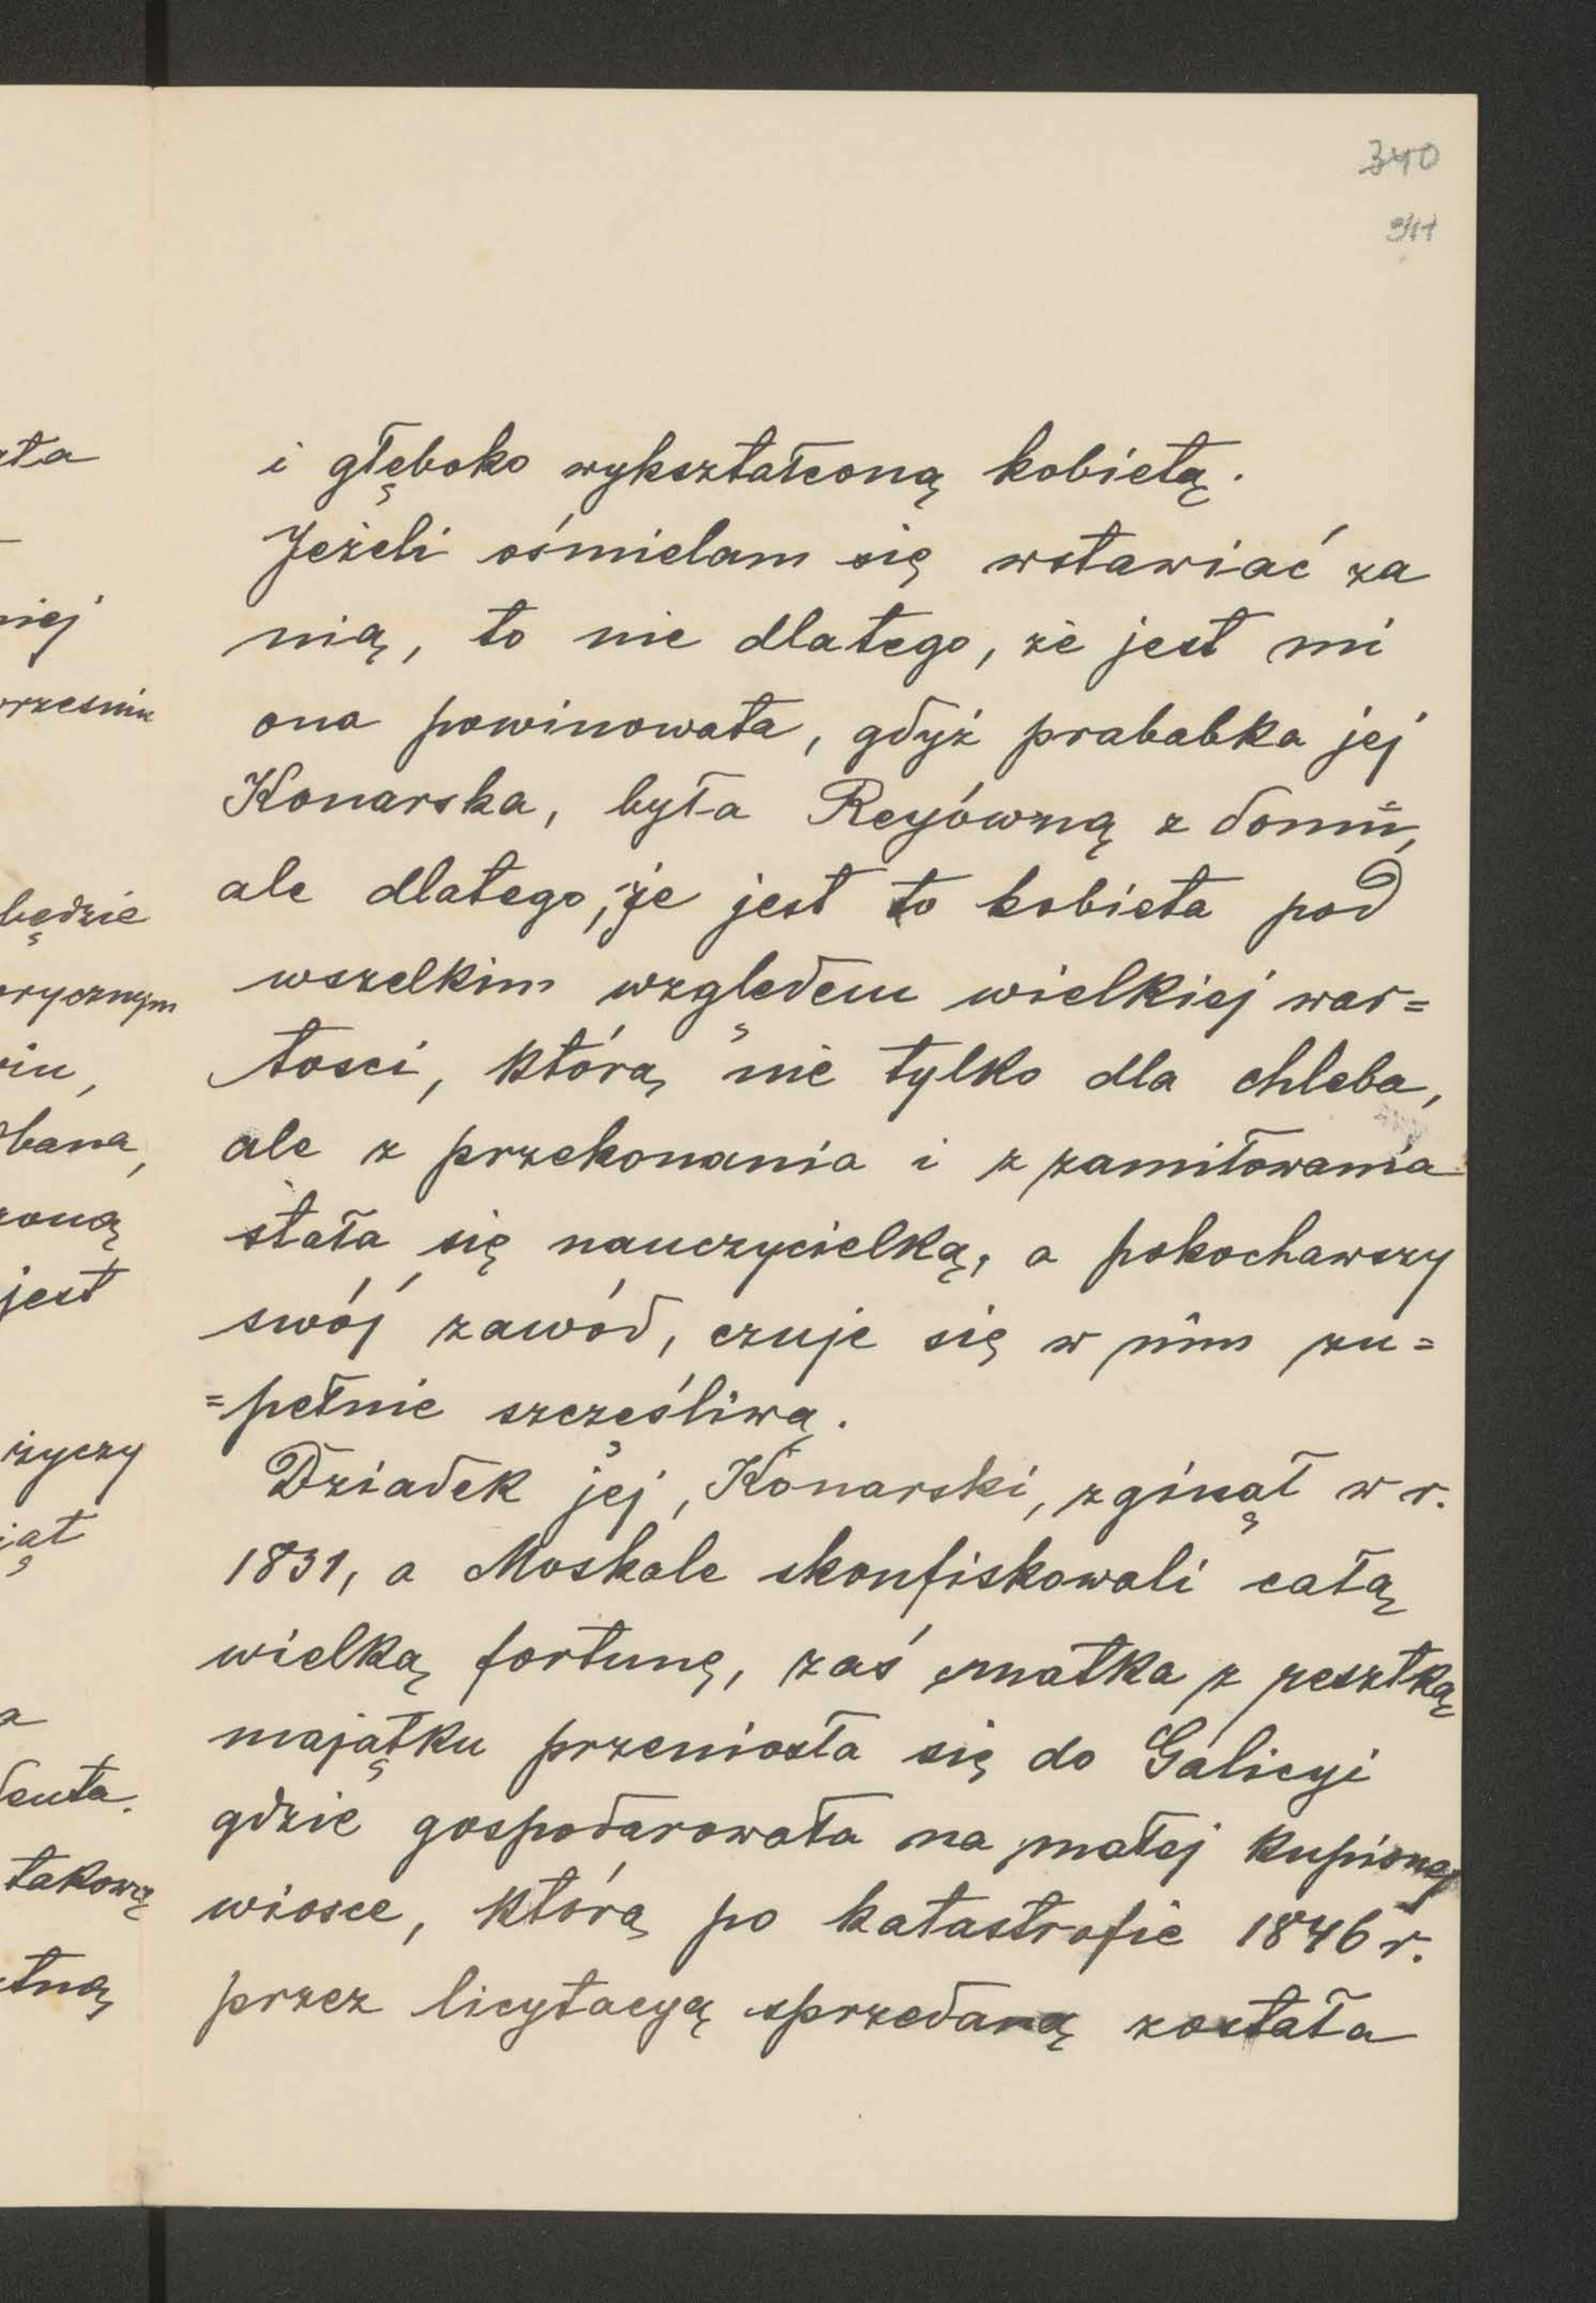 340
341
i głęboko wykształconą kobietą.
Jeżeli ośmielam się wstawiać za
nią, to nie dlatego, że jest mi
ona powinowata, gdyż prababka jej
Konarska, była Reyówną z domu,
ale dlatego, że jest to kobieta pod
wszelkim względem wielkiej war=
tosci, którą nie tylko dla chleba,
ale z przekonania i z zamiłowania
stała się nauczycielką, a pokochawszy
swój zawód, czuje się w nim zu=
=pełnie szczęśliwą.
Dziadek jej, Konarski, zginął w r.
1831, a Moskale skonfiskowali całą
wielką fortunę, zaś matka z resztką
majątku przeniosła się do Galicyi
gdzie gospodarowała na małej kupionej
wiosce, którą po katastrofie 1846 r.
przez licytacyą sprzedaną została
ata
niej
będzie
orycznym
jest
życzy
takową